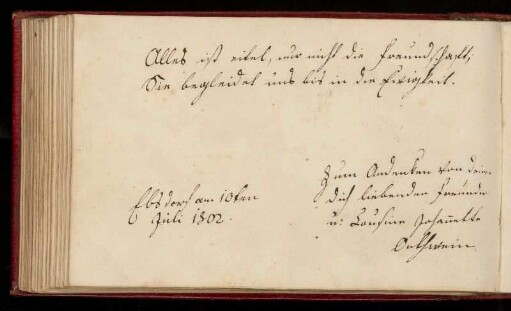 Alles ist eitel, nur nicht die Freundschaft;
Sie begleidet uns bis in die Ewigkeit.
Ebsdorf am 10ten
Juli 1802.
Zum Andenken von deiner
dich liebenden Freundin
u: Cousine Johannette
Orthwein